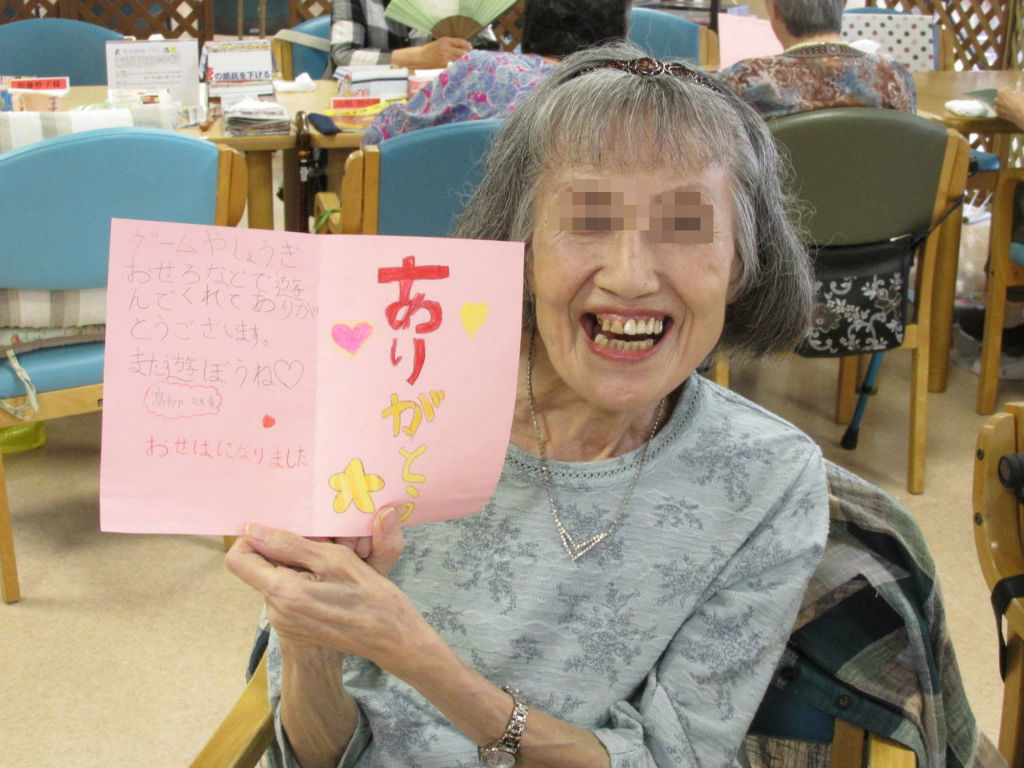 ゲームやしょうぎ
おせろなどで遊
んでくれてありが
とうございます。
また遊ぼうね♡
おせはになりました
ありがとう
の抵抗を下げる